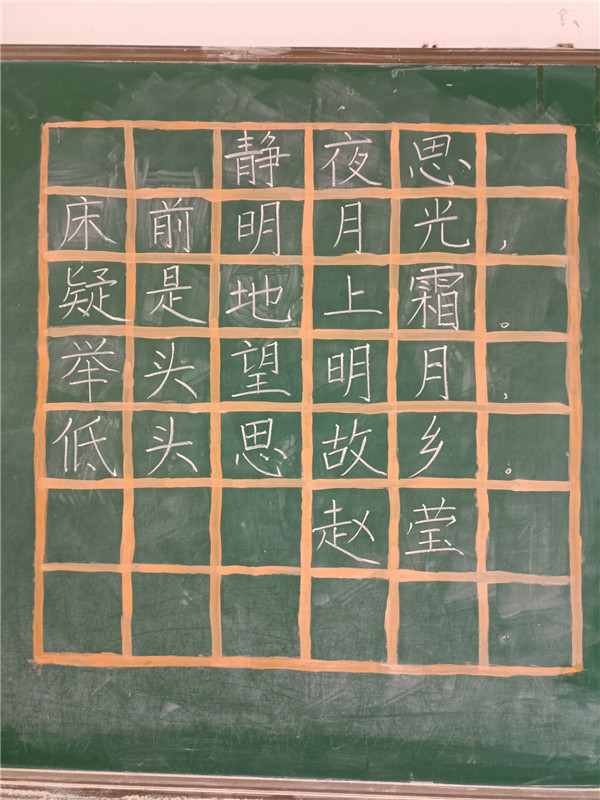 静夜思
床前明月光，
疑是地上霜。
举头望明月，
低头思故乡。
赵莹